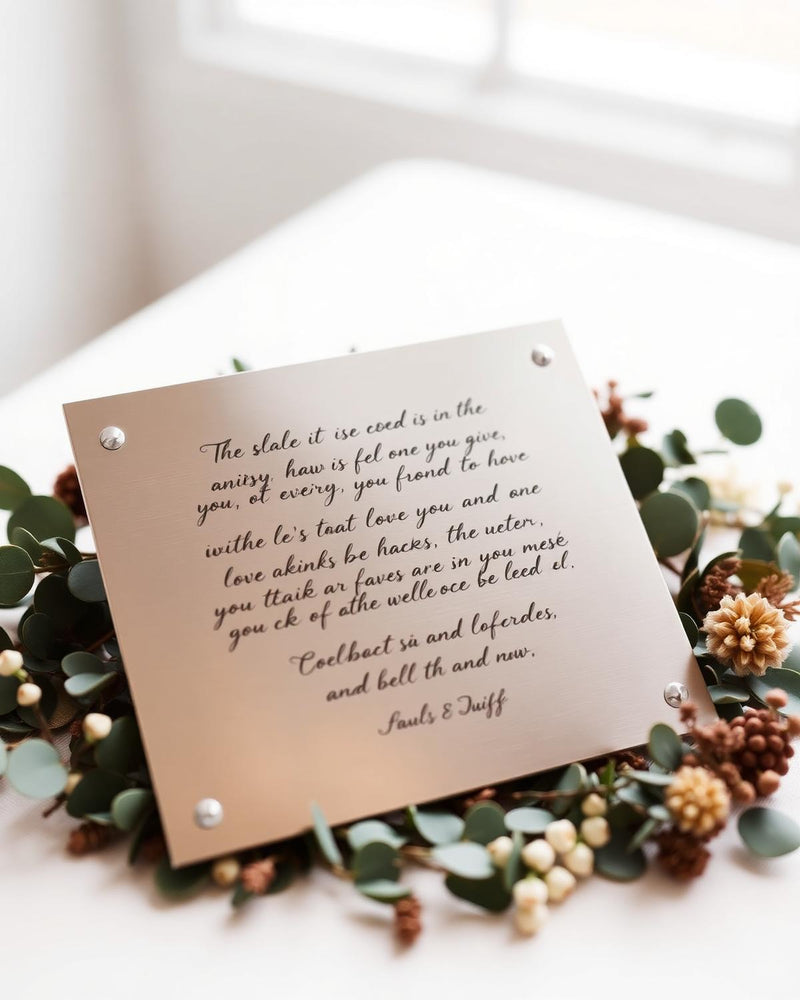 The slale it ise coed is in the
anirsy, haw is fel one you give,
you, ot eveiry, you frond to hove
withe le's toat love you and one
love akinks be hacks, the ueter,
you ttaik ar faves are in you mesé
gou ck of athe welle oce be leed el.
Coelbact sù and loferdes,
and bell th and now.
Sauls & Juiff